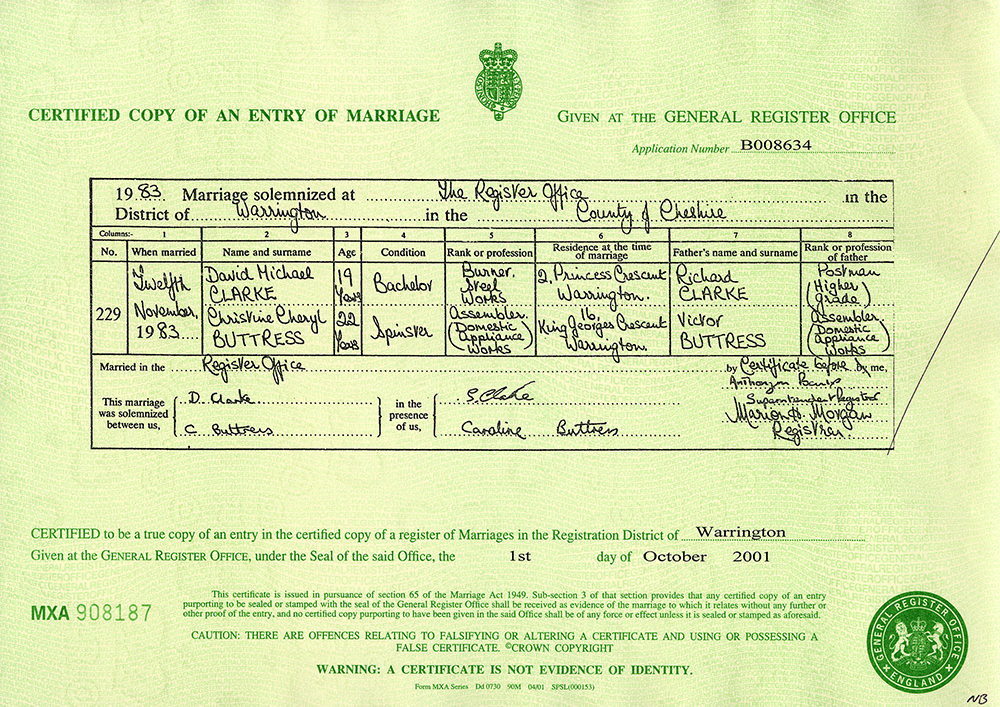 CERTIFIED COPY OF AN ENTRY OF MARRIAGE
GIVEN AT THE GENERAL REGISTER OFFICE
Application Number B008634
1983. Marriage solemnized at The Register Office in the
District of Warrington in the County of Cheshire
Columns:- 1 2 3 4 5 6 7 8
No. When married Name and surname Age Condition Rank or profession Residence at the time of marriage Father's name and surname Rank or profession of father
229
Twelfth
November,
1983.
David Michael
CLARKE
19
Years
Bachelor
Burner.
Steel
Works
2, Princess Crescent
Warrington.
Richard
CLARKE
Postman
(Higher
grade)
Christine Cheryl
BUTTRESS
22
Years
Spinster
Assembler.
(Domestic
appliance)
Works
16,
King Georges Crescent
Warrington.
Victor
BUTTRESS
Assembler.
(Domestic
appliance)
Works
Married in the Register Office by Certificate before by me,
This marriage
was solemnized
between us,
D. Clarke.
C Buttress
in the
presence
of us,
S. Clarke
Caroline Buttress
Superintendent Registrar
Marion H. Morgan
Registrar.
CERTIFIED to be a true copy of an entry in the certified copy of a register of Marriages in the Registration District of Warrington
Given at the GENERAL REGISTER OFFICE, under the Seal of the said Office, the 1st day of October 2001
MXA 908187
This certificate is issued in pursuance of section 65 of the Marriage Act 1949. Sub-section 3 of that section provides that any certified copy of an entry
purporting to be sealed or stamped with the seal of the General Register Office shall be received as evidence of the marriage to which it relates without any further or
other proof of the entry, and no certified copy purporting to have been given in the said Office shall be of any force or effect unless it is sealed or stamped as aforesaid.
CAUTION: THERE ARE OFFENCES RELATING TO FALSIFYING OR ALTERING A CERTIFICATE AND USING OR POSSESSING A
FALSE CERTIFICATE. ©CROWN COPYRIGHT
WARNING: A CERTIFICATE IS NOT EVIDENCE OF IDENTITY.
Form MXA Series Dd 0730 90M 04/01 SPSL(000153)
GENERAL REGISTER OFFICE
ENGLAND
NB